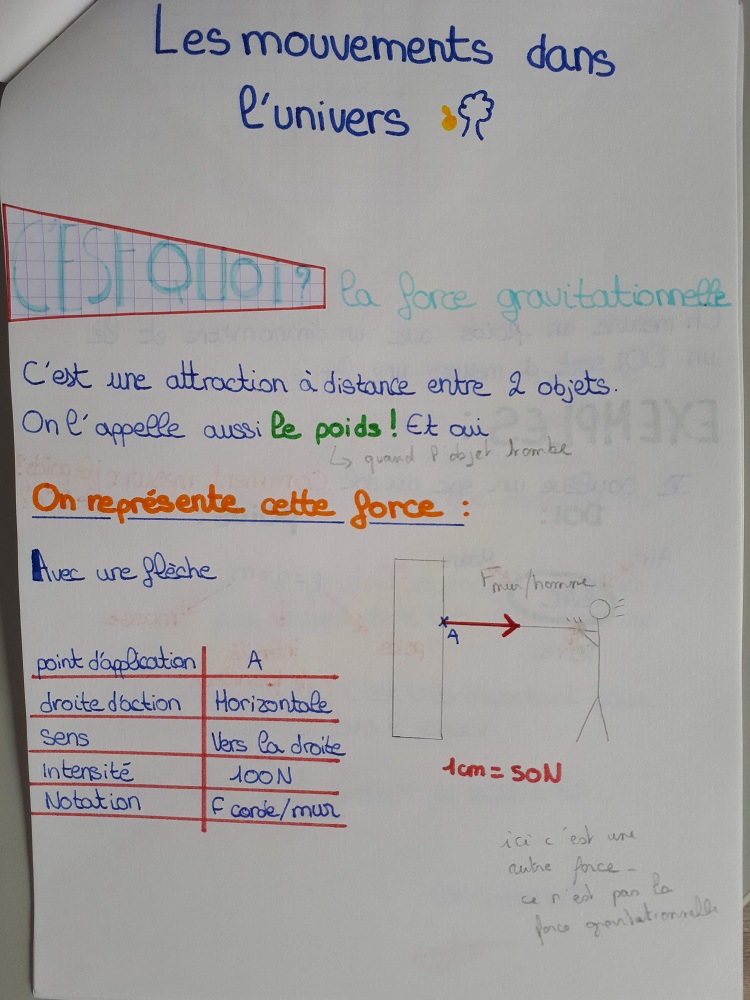 Les mouvements dans
l'univers
C'EST QUOI ? la force gravitationnelle
C'est une attraction à distance entre 2 objets.
On l'appelle aussi le poids ! Et oui
↳ quand l'objet tombe
On représente cette force :
Avec une flèche
F mur/homme
A
point d'application A
droite d'action Horizontale
sens Vers la droite
Intensité 100N
Notation F corde/mur
1cm = 50N
ici c'est une
autre force -
ce n'est pas la
force gravitationnelle